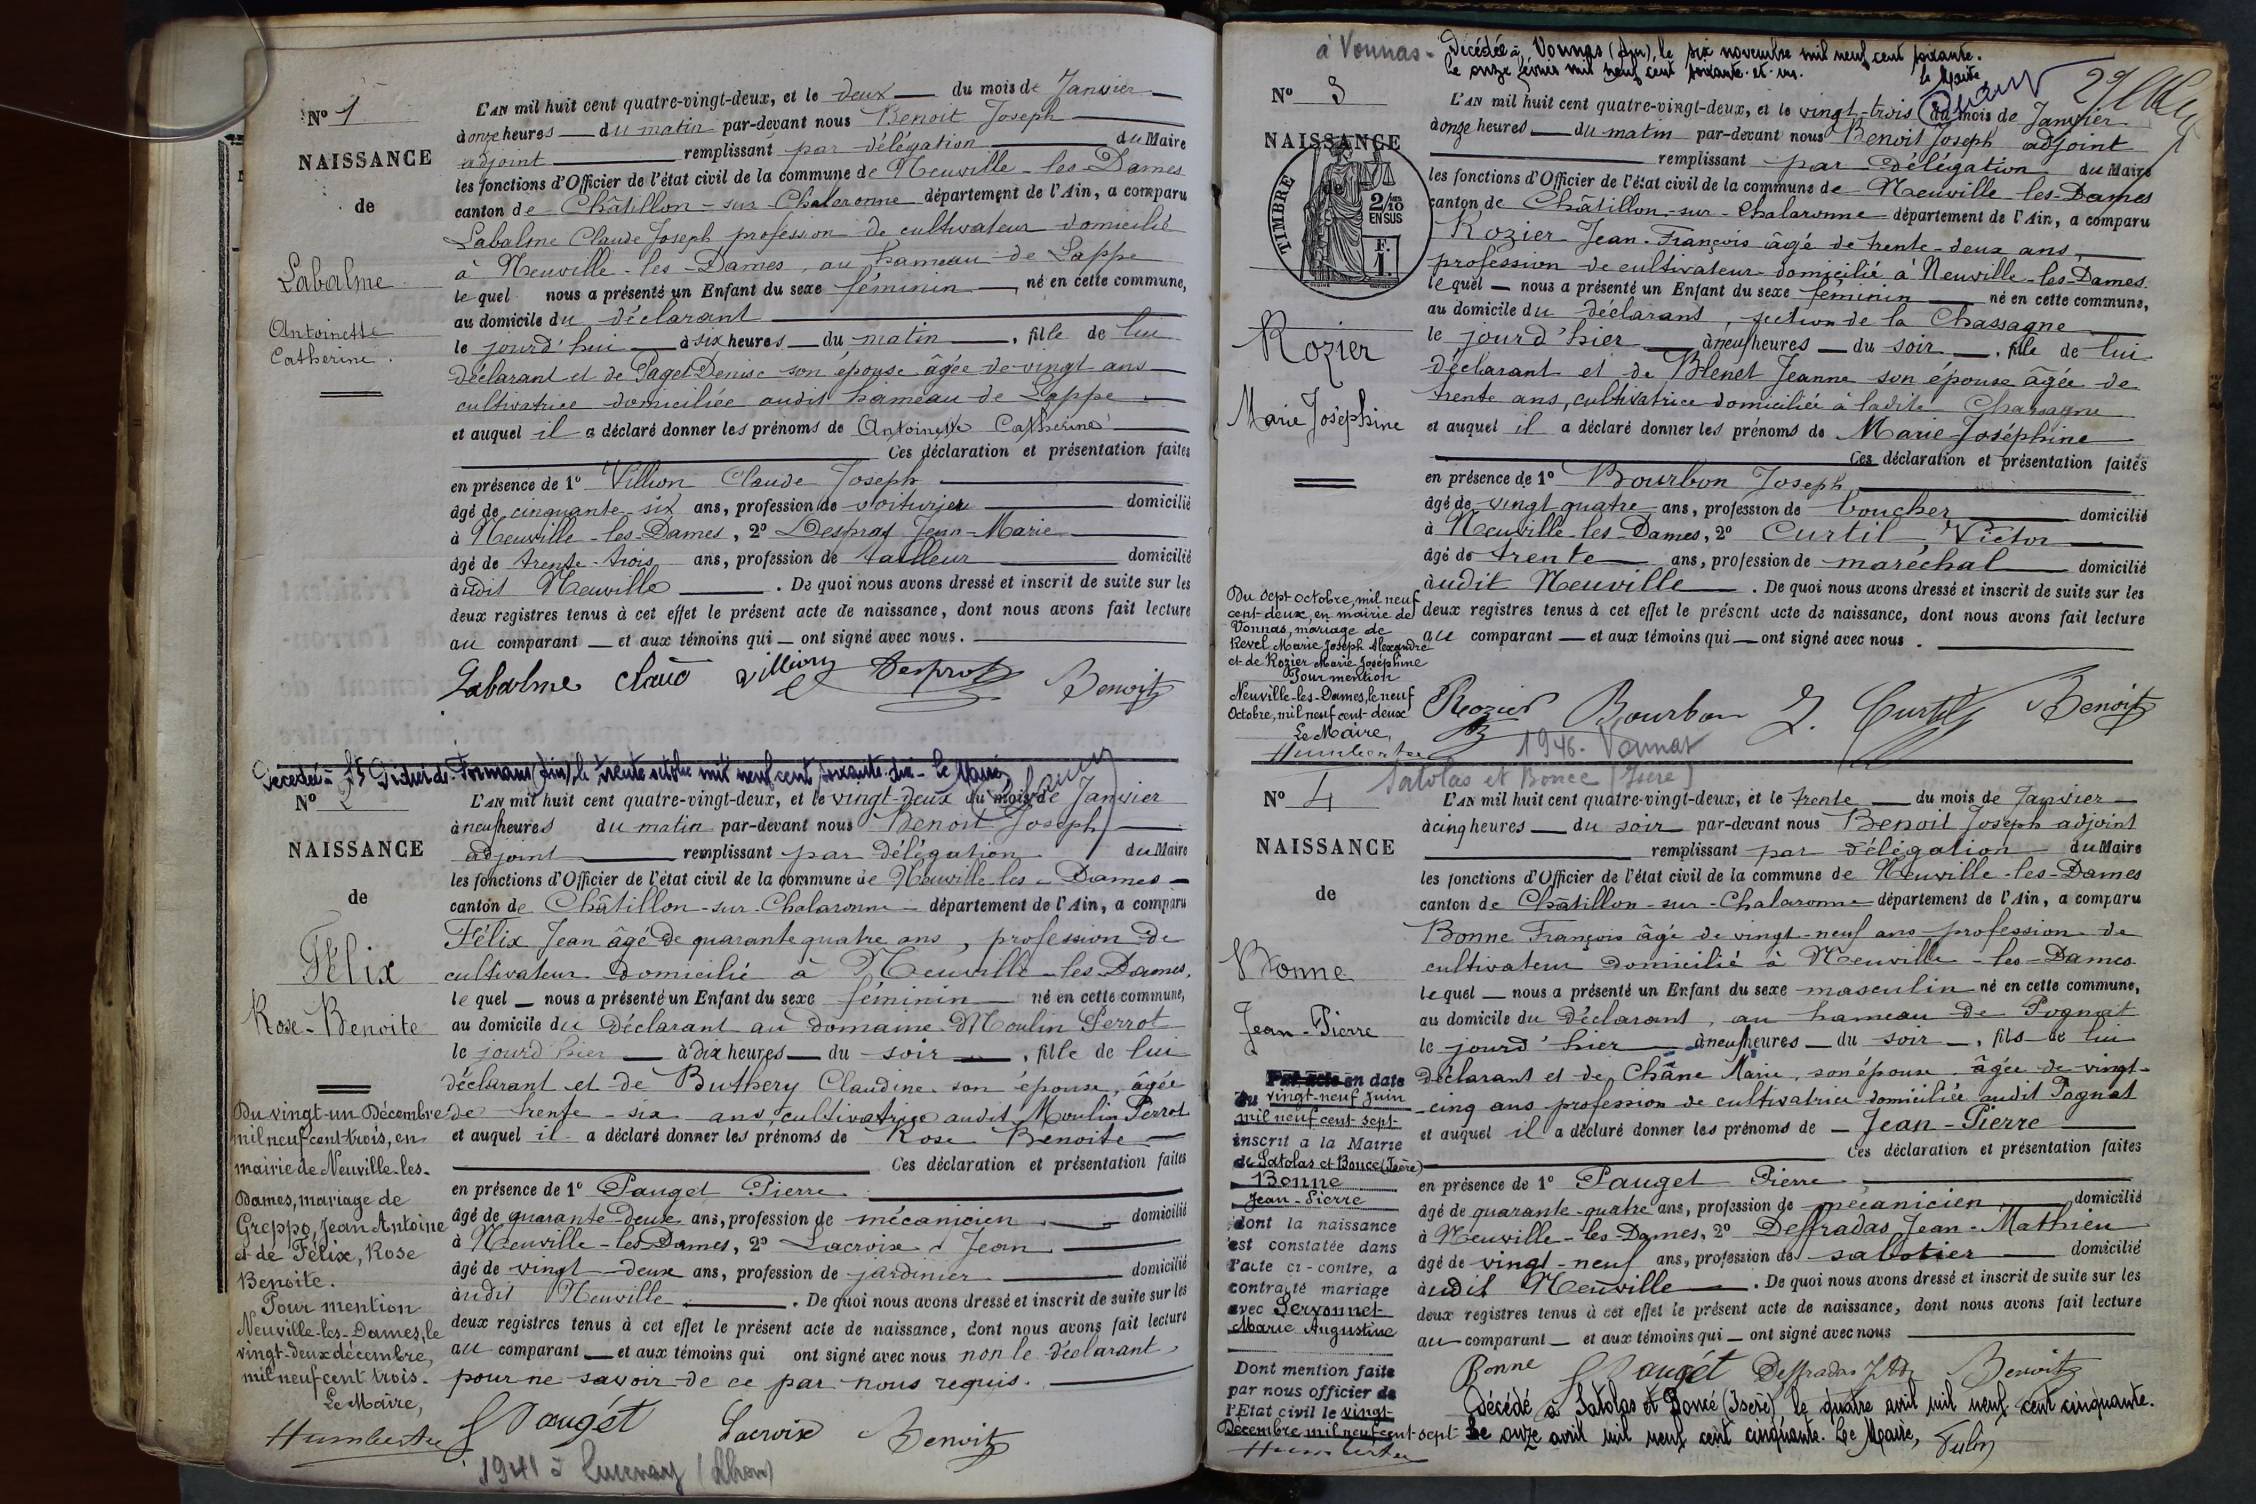 No 1
NAISSANCE
de
Labalme
Antoinette
Catherine.
L'AN mil huit cent quatre-vingt-deux, et le deux du mois de Janvier
à onze heures du matin par-devant nous Benoit Joseph
adjoint remplissant par délégation du Maire
les fonctions d'Officier de l'état civil de la commune de Neuville-les-Dames
canton de Châtillon-sur-Chalaronne département de l'Ain, a comparu
Labalme Claude Joseph profession de cultivateur domicilié
à Neuville-les-Dames, au hameau de Lappe
lequel nous a présenté un Enfant du sexe féminin, né en cette commune,
au domicile du déclarant
le jourd'hui à six heures du matin, fille de lui
déclarant et de Paget Denise son épouse âgée de vingt ans
cultivatrice domiciliée audit hameau de Lappe
et auquel il a déclaré donner les prénoms de Antoinette Catherine
Ces déclaration et présentation faites
en présence de 1o Villion Claude Joseph
âgé de cinquante-six ans, profession de voiturier domicilié
à Neuville-les-Dames, 2o Desprat Jean-Marie
âgé de trente-trois ans, profession de tailleur domicilié
audit Neuville. De quoi nous avons dressé et inscrit de suite sur les
deux registres tenus à cet effet le présent acte de naissance, dont nous avons fait lecture
au comparant et aux témoins qui ont signé avec nous.
Labalme Claud Villion Desprat Benoit
Décédée à St Didier de Formans (Ain), le trente octobre mil neuf cent soixante-dix - le Maire
No 2
NAISSANCE
de
Félix
Rose-Benoite
L'AN mil huit cent quatre-vingt-deux, et le vingt-deux du mois de Janvier
à neuf heures du matin par-devant nous Benoit Joseph
adjoint remplissant par délégation du Maire
les fonctions d'Officier de l'état civil de la commune de Neuville-les-Dames
canton de Châtillon-sur-Chalaronne département de l'Ain, a comparu
Félix Jean âgé de quarante quatre ans, profession de
cultivateur domicilié à Neuville-les-Dames,
lequel nous a présenté un Enfant du sexe féminin né en cette commune,
au domicile du déclarant au Domaine Moulin Perrot
le jourd'hier à dix heures du soir, fille de lui
déclarant et de Buthery Claudine son épouse, âgée
de trente-six ans, cultivatrice audit Moulin Perrot
et auquel il a déclaré donner les prénoms de Rose Benoite
Ces déclaration et présentation faites
en présence de 1o Pauget Pierre
âgé de quarante-deux ans, profession de mécanicien domicilié
à Neuville-les-Dames, 2o Lacroix Jean
âgé de vingt-deux ans, profession de jardinier domicilié
audit Neuville. De quoi nous avons dressé et inscrit de suite sur les
deux registres tenus à cet effet le présent acte de naissance, dont nous avons fait lecture
au comparant et aux témoins qui ont signé avec nous non le déclarant
pour ne savoir de ce par nous requis.
Du vingt-un Décembre
mil neuf cent-trois, en
mairie de Neuville-les-
Dames, mariage de
Greppo, Jean Antoine
et de Félix, Rose
Benoite.
Pour mention
Neuville-les-Dames, le
vingt-deux décembre,
mil neuf cent trois.
Le Maire,
Humbert
Pauget Lacroix Benoit
1941 à Lucenay (Rhône)
à Vonnas - Décédée à Vonnas (Ain), le six novembre mil neuf cent soixante.
Le onze février mil neuf cent soixante-et-un.
Le Maire
No 3
NAISSANCE
TIMBRE
2/10
EN SUS
F.
1.
Rozier
Marie Joséphine
L'AN mil huit cent quatre-vingt-deux, et le vingt-trois du mois de Janvier
à onze heures du matin par-devant nous Benoit Joseph adjoint
remplissant par délégation du Maire
les fonctions d'Officier de l'état civil de la commune de Neuville-les-Dames
canton de Châtillon-sur-Chalaronne département de l'Ain, a comparu
Rozier Jean-François âgé de trente-deux ans,
profession de cultivateur domicilié à Neuville-les-Dames
lequel nous a présenté un Enfant du sexe féminin né en cette commune,
au domicile du déclarant, section de la Chassagne
le jourd'hier à neuf heures du soir, fille de lui
déclarant et de Blenet Jeanne son épouse âgée de
trente ans, cultivatrice domiciliée à ladite Chassagne
et auquel il a déclaré donner les prénoms de Marie-Joséphine
Ces déclaration et présentation faites
en présence de 1o Bourbon Joseph
âgé de vingt quatre ans, profession de boucher domicilié
à Neuville-les-Dames, 2o Curtil, Victor
âgé de trente ans, profession de maréchal domicilié
audit Neuville. De quoi nous avons dressé et inscrit de suite sur les
deux registres tenus à cet effet le présent acte de naissance, dont nous avons fait lecture
au comparant et aux témoins qui ont signé avec nous.
Du sept Octobre, mil neuf
cent-deux, en mairie de
Vonnas, mariage de
Revel Marie Joseph Alexandre
et de Rozier Marie Joséphine
Pour mention
Neuville-les-Dames, le neuf
Octobre, mil neuf cent-deux
Le Maire,
Humbert
Rozier Bourbon J. Curtil Benoit
1946. Vonnas
Satolas et Bonce (Isère)
No 4
NAISSANCE
de
Bonne
Jean-Pierre
L'AN mil huit cent quatre-vingt-deux, et le trente du mois de Janvier
à cinq heures du soir par-devant nous Benoit Joseph adjoint
remplissant par délégation du Maire
les fonctions d'Officier de l'état civil de la commune de Neuville-les-Dames
canton de Châtillon-sur-Chalaronne département de l'Ain, a comparu
Bonne François âgé de vingt-neuf ans profession de
cultivateur domicilié à Neuville-les-Dames
lequel nous a présenté un Enfant du sexe masculin né en cette commune,
au domicile du déclarant, au hameau de Pognat
le jourd'hier à neuf heures du soir, fils de lui
déclarant et de Chêne Marie, son épouse âgée de vingt-
cinq ans profession de cultivatrice domiciliée audit Pognat
et auquel il a déclaré donner les prénoms de Jean-Pierre
Ces déclaration et présentation faites
en présence de 1o Pauget Pierre
âgé de quarante-quatre ans, profession de mécanicien domicilié
à Neuville-les-Dames, 2o Deffradas Jean-Mathieu
âgé de vingt-neuf ans, profession de sabotier domicilié
audit Neuville. De quoi nous avons dressé et inscrit de suite sur les
deux registres tenus à cet effet le présent acte de naissance, dont nous avons fait lecture
au comparant et aux témoins qui ont signé avec nous
Par acte en date
du vingt-neuf Juin
mil neuf cent sept
inscrit à la Mairie
de Satolas et Bonce (Isère)
Bonne
Jean-Pierre
dont la naissance
est constatée dans
l'acte ci-contre, a
contracté mariage
avec Servonnet
Marie Augustine
Dont mention faite
par nous officier de
l'Etat civil le vingt-
Décembre mil neuf cent-sept
Humbert
Bonne Pauget Deffradas Benoit
Décédé à Satolas et Bonce (Isère) le quatre avril mil neuf cent cinquante.
Le onze avril mil neuf cent cinquante. Le Maire,